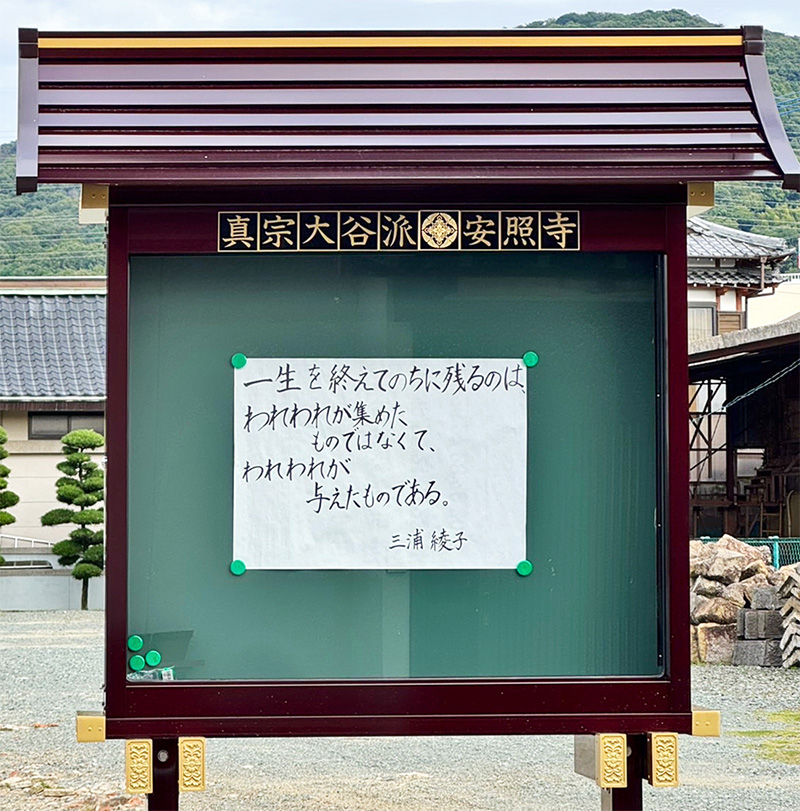 真宗大谷派安照寺
一生を終えてのちに残るのは、
われわれが集めた
ものではなくて、
われわれが
与えたものである。
三浦綾子